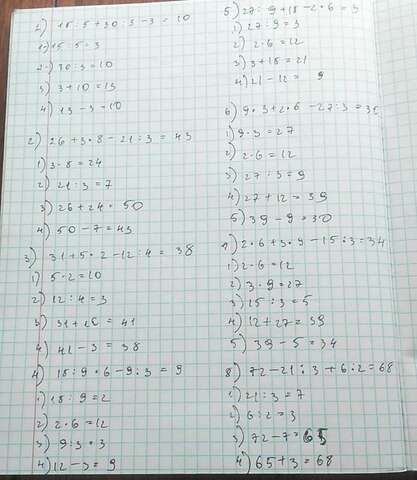 1) 15 : 5 + 30 : 3 - 3 = 10
1) 15 : 5 = 3
2) 30 : 3 = 10
3) 3 + 10 = 13
4) 13 - 3 = 10
2) 26 + 3 · 8 - 21 : 3 = 43
1) 3 · 8 = 24
2) 21 : 3 = 7
3) 26 + 24 = 50
4) 50 - 7 = 43
3) 31 + 5 · 2 - 12 : 4 = 38
1) 5 · 2 = 10
2) 12 : 4 = 3
3) 31 + 10 = 41
4) 41 - 3 = 38
4) 18 : 9 · 6 - 9 : 3 = 9
1) 18 : 9 = 2
2) 2 · 6 = 12
3) 9 : 3 = 3
4) 12 - 3 = 9
5) 27 : 9 + 18 - 2 · 6 = 9
1) 27 : 9 = 3
2) 2 · 6 = 12
3) 3 + 18 = 21
4) 21 - 12 = 9
6) 9 · 3 + 2 · 6 - 27 : 3 = 30
1) 9 · 3 = 27
2) 2 · 6 = 12
3) 27 : 3 = 9
4) 27 + 12 = 39
5) 39 - 9 = 30
7) 2 · 6 + 3 · 9 - 15 : 3 = 34
1) 2 · 6 = 12
2) 3 · 9 = 27
3) 15 : 3 = 5
4) 12 + 27 = 39
5) 39 - 5 = 34
8) 72 - 21 : 3 + 6 : 2 = 68
1) 21 : 3 = 7
2) 6 : 2 = 3
3) 72 - 7 = 65
4) 65 + 3 = 68